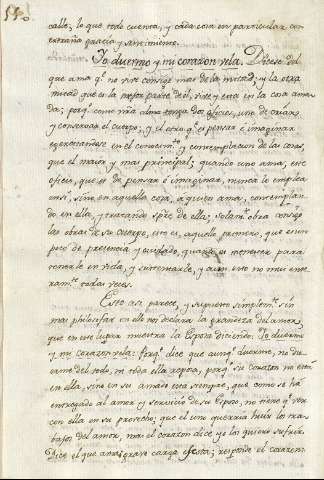 55.
calle, lo que todo cuenta, y cada cosa en particular con
extraña gracia y sentimiento.
Yo duermo y mi corazon vela. Dicese del
que ama q.e no vive consigo mas de la mitad; y la otra
mitad que es la mejor parte de el, vive y está en la cosa ama-
da; porq.e como nra alma tenga dos oficios, uno de criar
y conservar el cuerpo, y el otro q.e es pensar e imaginar
exercitandose en el conocim.to y contemplacion de las cosas,
que el maior y mas principal; quando uno ama, este
oficio, que es de pensar e imaginar, nunca lo emplea
en si, sino en aquella cosa, a quien ama, contemplan-
do en ella, y tratando spre de ella; solam.te obra consigo
las obras de su cuerpo, esto es, aquello primero, que es un
poco de presencia y cuidado, quanto es menester para
tenerle en vida, y sustentarle, y aun esto no mui ente-
ram.te todas veces.
Esto asi parece, y supuesto simplem.te sin
mas philosofar en ello nos declara la grandeza del amor,
que en este lugar muestra la Esposa diciendo: Yo duermo
y mi corazon vela: porq.e dice que aunq.e duerme, no du-
erme del todo, ni toda ella reposa, porq.e su corazon no está
en ella, sino en su amado está siempre, que como se ha
entregado al amor y servicio de su Esposo, no tiene q.e ver
con ella en su provecho; que el uno querria huir los tra-
bajos del amor, mas el corazon dice yo los quiero sufrir.
Dice el que ama: grave carga es esta; responde el corazon